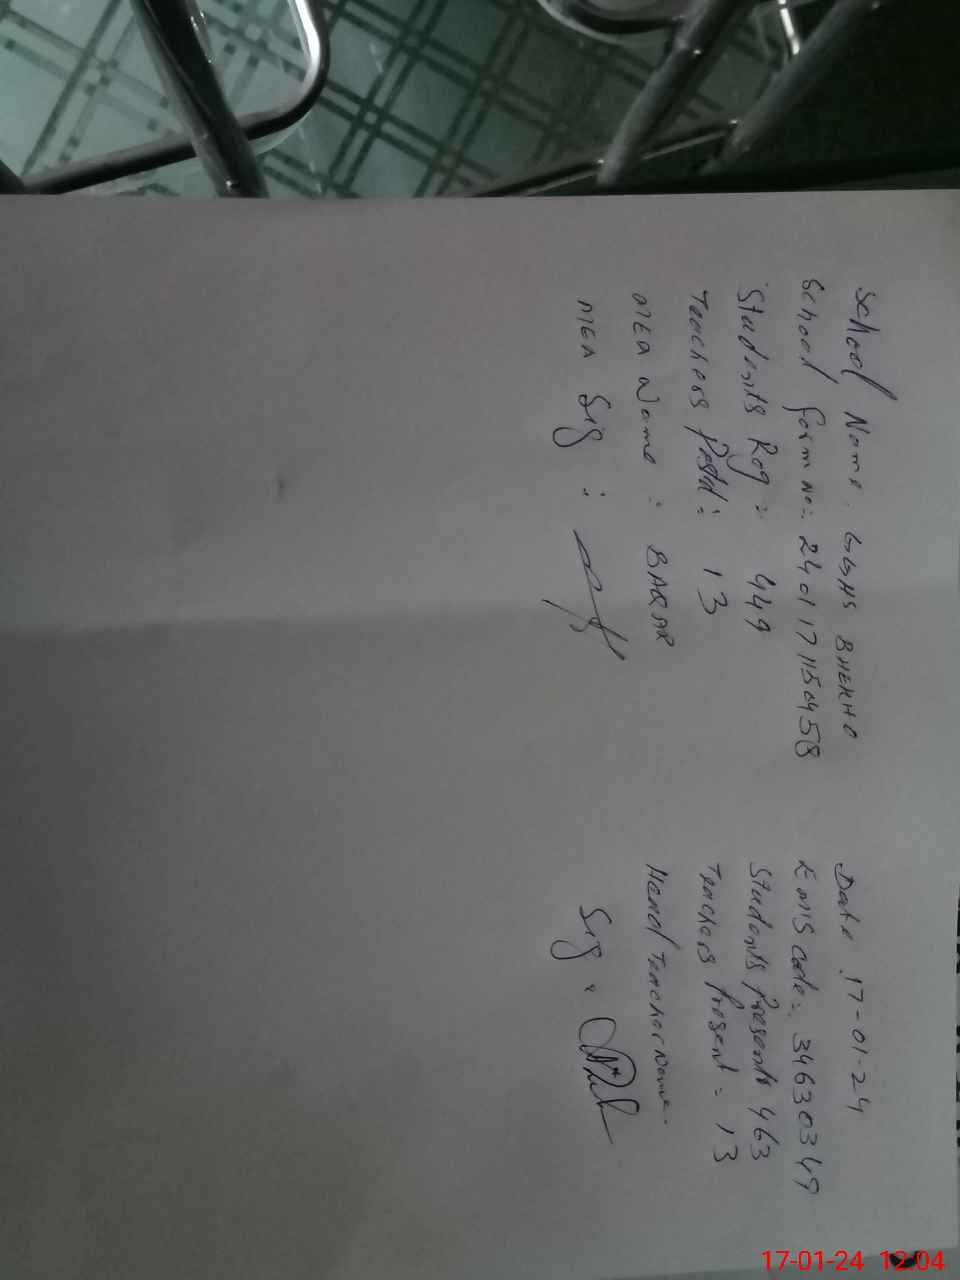 School Name: GGHS BHEKHO Date: 17-01-24
School form No:- 2401171150458 EMIS Code:- 34630349
Students Reg = 449 Students Present 463
Teachers Postd: 13 Teachers Present = 13
MEA Name : BAQAR Head Teacher Name-
MEA Sig : Sig :
17-01-24 12:04